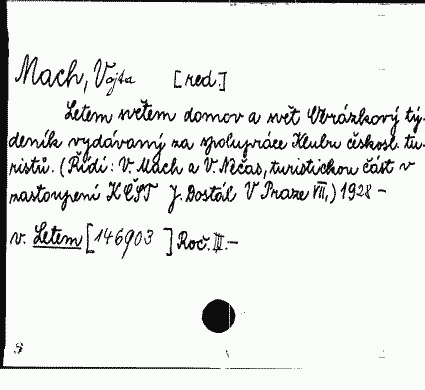 Mach, Vojta [red.]
Letem světem domov a svět Obrázkový tý-
deník vydávaný za spolupráce Klubu českosl. tu-
ristů. (Řídí: V. Mach a V. Nečas, turistickou část v
zastoupení KČST J. Dostál V Praze VII,) 1928 -
v. Letem [146903 ] Roč. III.-